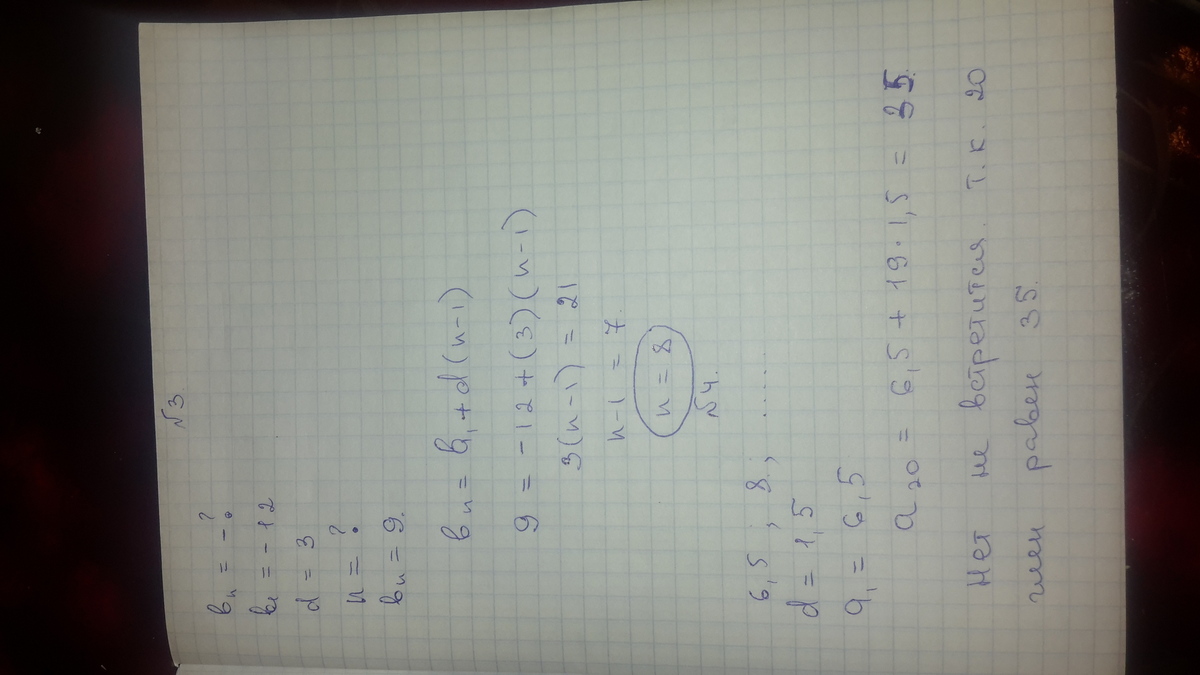 №3.
вn = -?
в1 = -12
d = 3
n = ?
вn = 9.
вn = в1 + d(n-1)
9 = -12 + (3)(n-1)
3(n-1) = 21
n-1 = 7.
n = 8
№4.
6,5 ; 8 ; ......
d = 1,5
a1 = 6,5
a20 = 6,5 + 19·1,5 = 35.
Нет не встретится. т.к. 20
член равен 35.